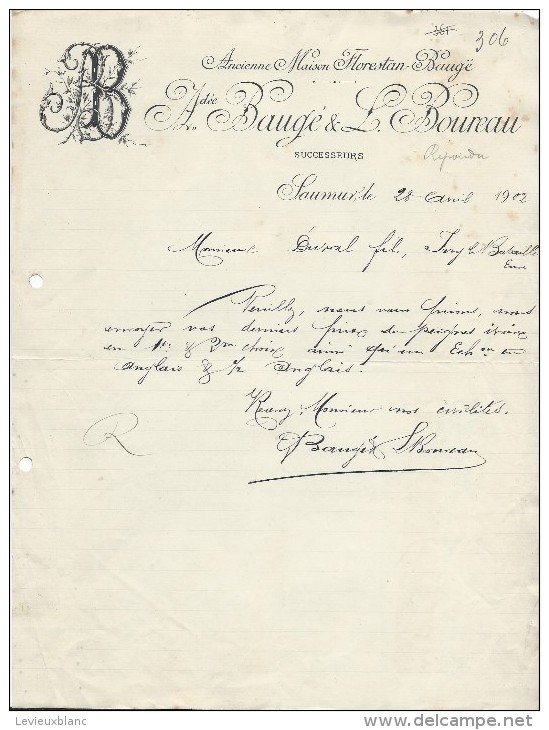 306
Ancienne Maison Florestan-Baugé
Adée Baugé & L. Boureau
SUCCESSEURS
Répondu
Saumur, le 28 Avril 1902
Monsieur Duval fils, à Ivry la Bataille
Eure
Veuillez, nous vous prions, nous
envoyer vos derniers prix de peignes ivoire
en 1er & 2me choix ainsi qu'en Ech on en
Anglais & 1/2 Anglais.
Recevez Monsieur nos civilités.
Baugé & LBoureau
R
Levieuxblanc
www.delcampe.net